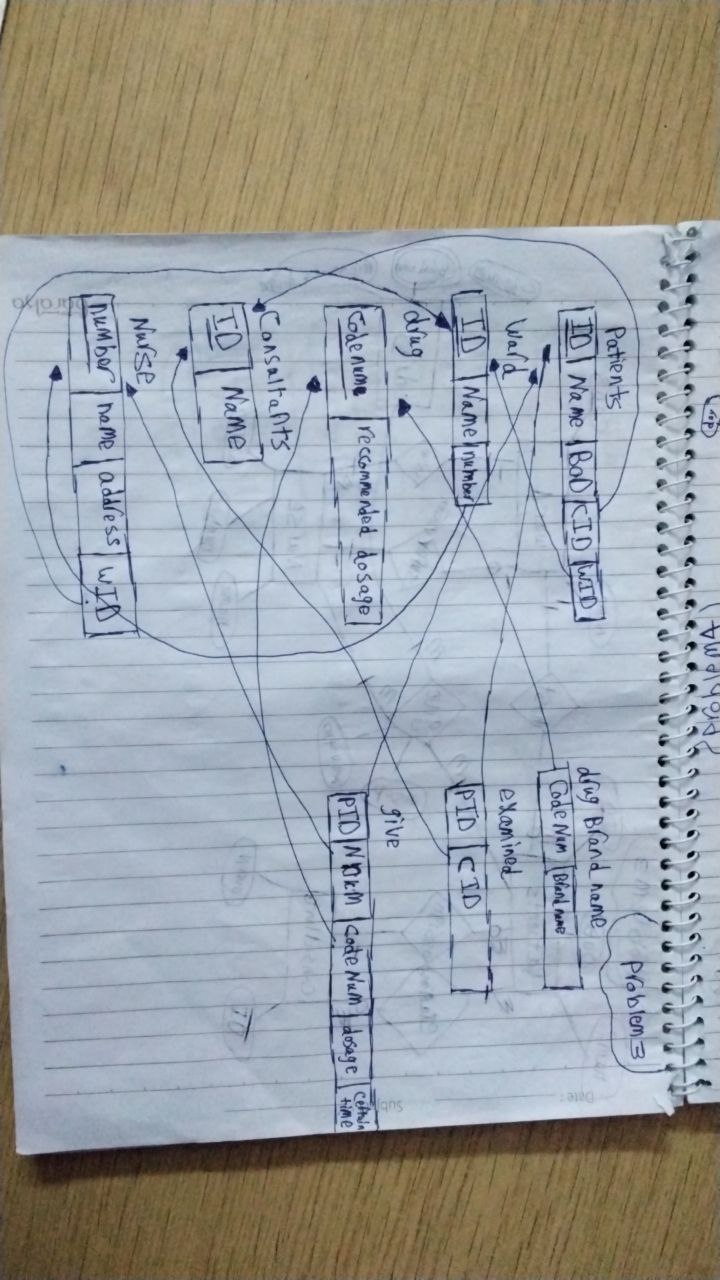 Problem 3
Patients
ID Name BoD CID WID
Ward
ID Name number
drug
Codenum reccommended dosage
Consultants
ID Name
Nurse
number name address WID
drug Brand name
CodeNum Brand name
examined
PID CID
give
PID CodeNum dosage time